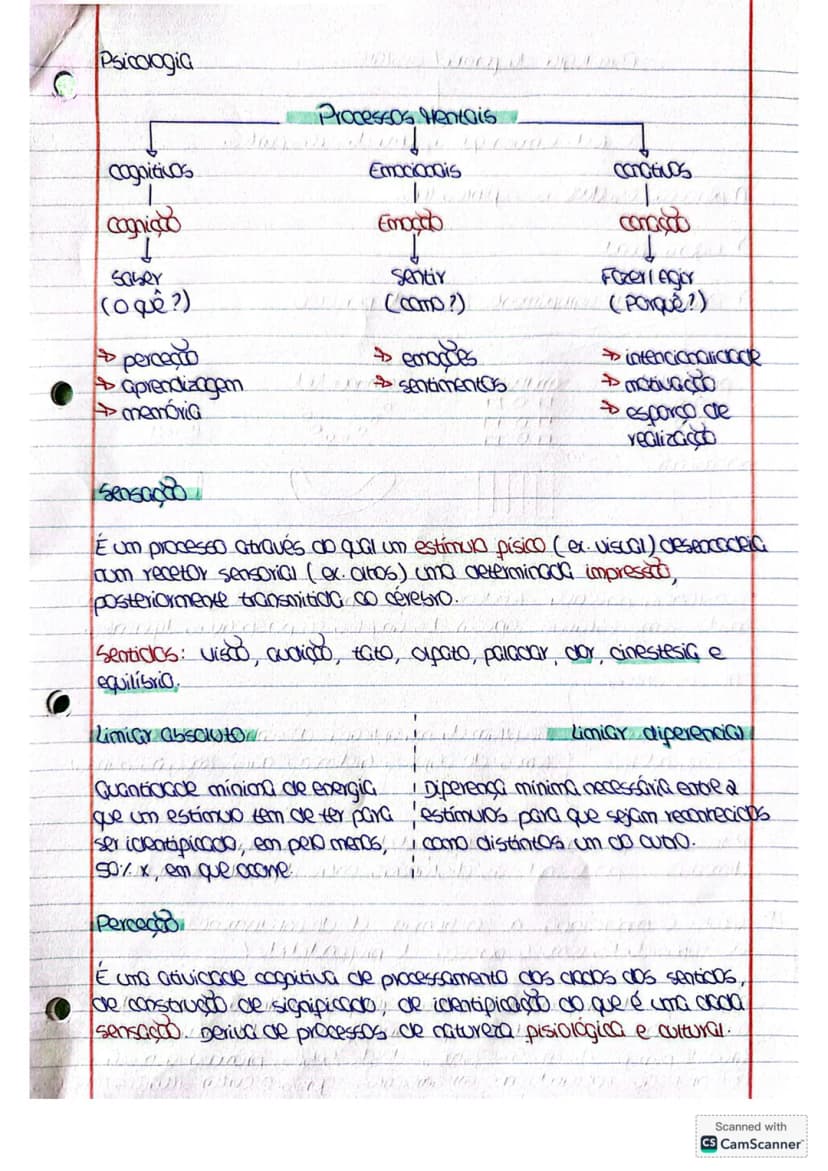 Psicologia
Processos Mentais
cognitivos Emocionais conativos
cognição Emoção conação
saber sentir Fazer/Agir
(o quê?) (como?) (Porquê?)
→ perceção → emoções → intencionalidade
→ aprendizagem → sentimentos → motivação
→ memória → esforço de
realização
Sensação
É um processo através do qual um estímulo físico (ex. visual) desencadeia
num recetor sensorial (ex. olhos) uma determinada impressão,
posteriormente transmitida ao cérebro.
Sentidos: visão, audição, tato, olfato, paladar, dor, cinestesia e
equilíbrio.
Limiar absoluto
Quantidade mínima de energia
que um estímulo tem de ter para
ser identificado, em pelo menos,
50% x, em que ocorre.
Limiar diferencial
Diferença mínima necessária entre 2
estímulos para que sejam reconhecidos
como distintos um do outro.
Perceção
É uma atividade cognitiva de processamento dos dados dos sentidos,
de construção de significado, de identificação do que é uma dada
sensação. Deriva de processos de natureza fisiológica e cultural.
Scanned with
CS CamScanner